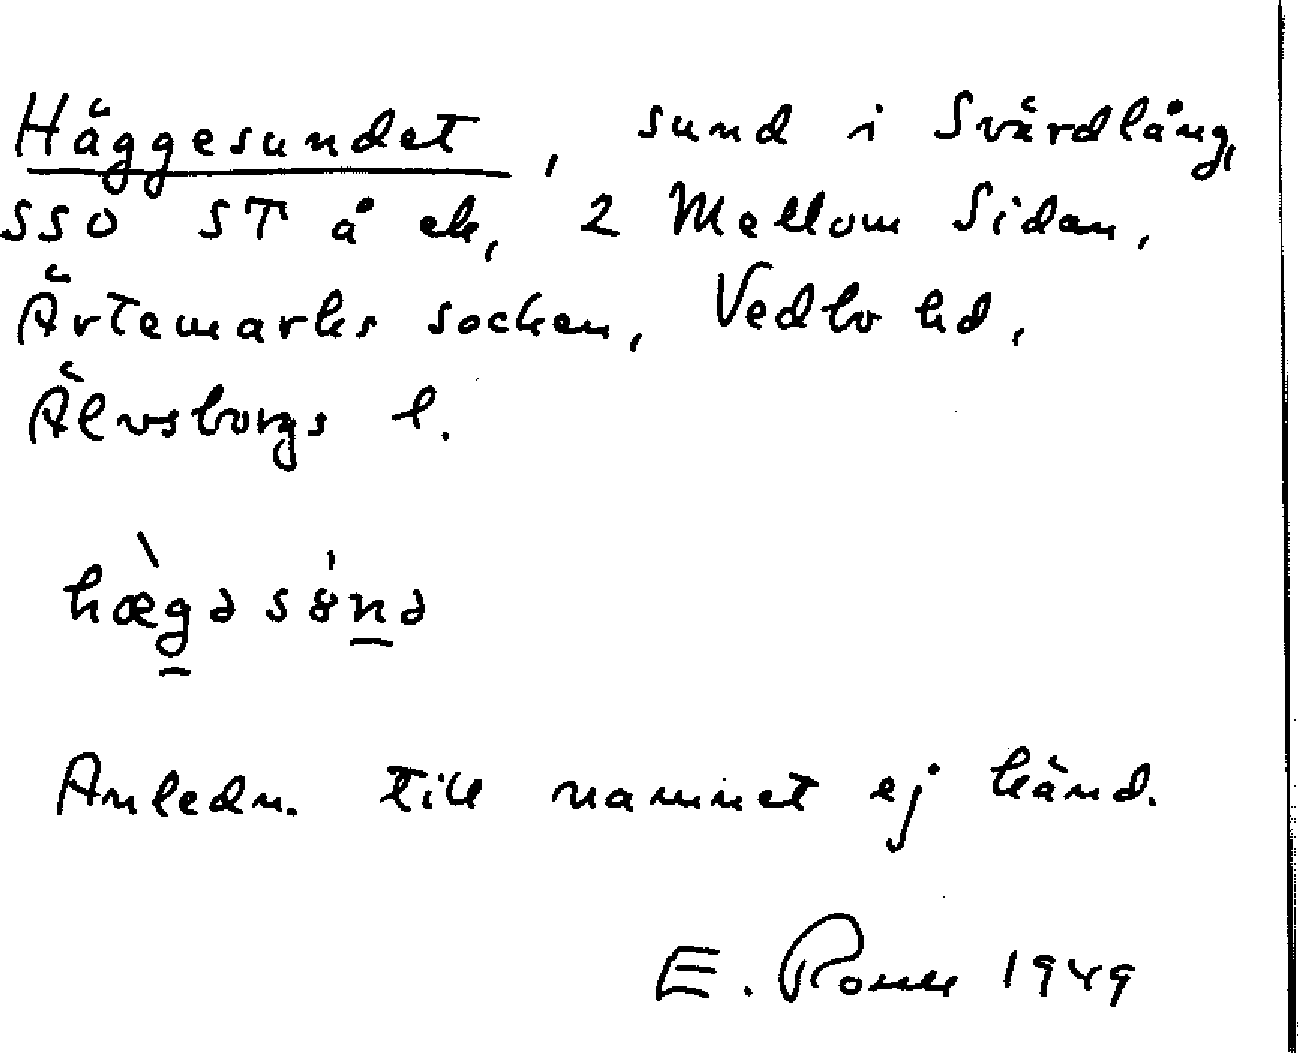 Häggesundet, sund i Svärdlång,
SSO ST å ek, 2 Mellom Sidan,
Ärtemarks socken, Vedbo hd,
Älvsborgs l.
hæ̀gəsɤ́nə
Anledn. till namnet ej känd.
E. 1949